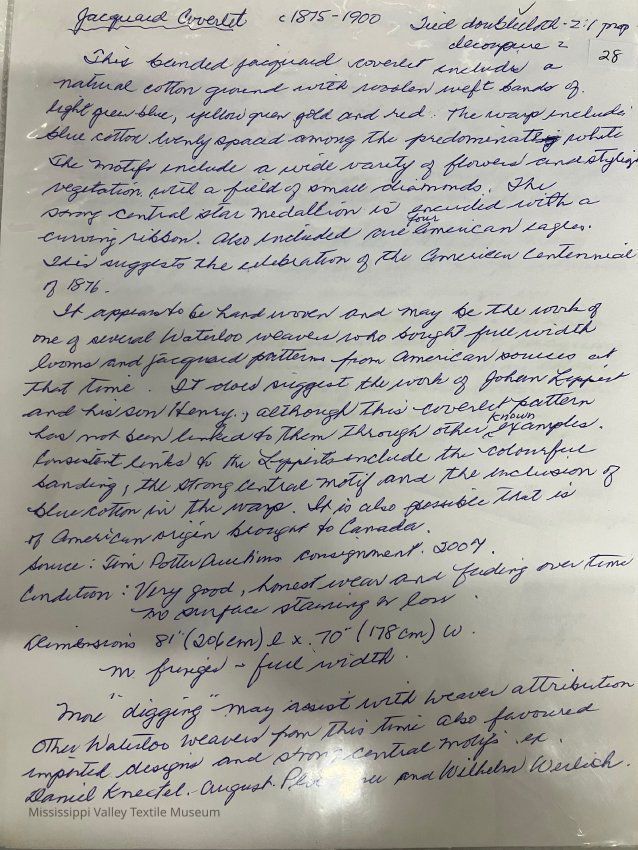 Jacquard Coverlet c1875-1900 Tied doublecloth - 2:1 prop
28
This banded jacquard coverlet includes a
natural cotton ground with woolen weft bands of
light green blue, yellow green gold and red. The warp includes
blue cotton evenly spaced among the predominate white
The motifs include a wide variety of flowers and
vegetation with a field of small diamonds. The
strong central star medallion is encircled with a
curving ribbon. Also included are four American eagles.
This suggests the celebration of the American Centennial
of 1876.
It appears to be hand woven and may be the work of
one of several Waterloo weavers who bought full width
looms and jacquard patterns from American sources at
that time. It does suggest the work of Johan Lippert
and his son Henry, although this coverlet pattern
has not been linked to them through other known examples.
Consistent links to the Lipperts include the colourful
banding, the strong central motif and the inclusion of
blue cotton in the warp. It is also possible that is
of American origin brought to Canada.
Source: Jim Potter Auctions consignment. 2007.
Condition: Very good, honest wear and fading over time
no surface staining or loss.
Dimensions 81" (206cm) l x. 70" (178cm) w.
no fringes - full width.
More "digging" may assist with weaver attribution
Other Waterloo weavers from this time also favoured
imported designs and strong central motifs ex.
Daniel Knectel. August. and Wilhelm Werlich.
Mississippi Valley Textile Museum